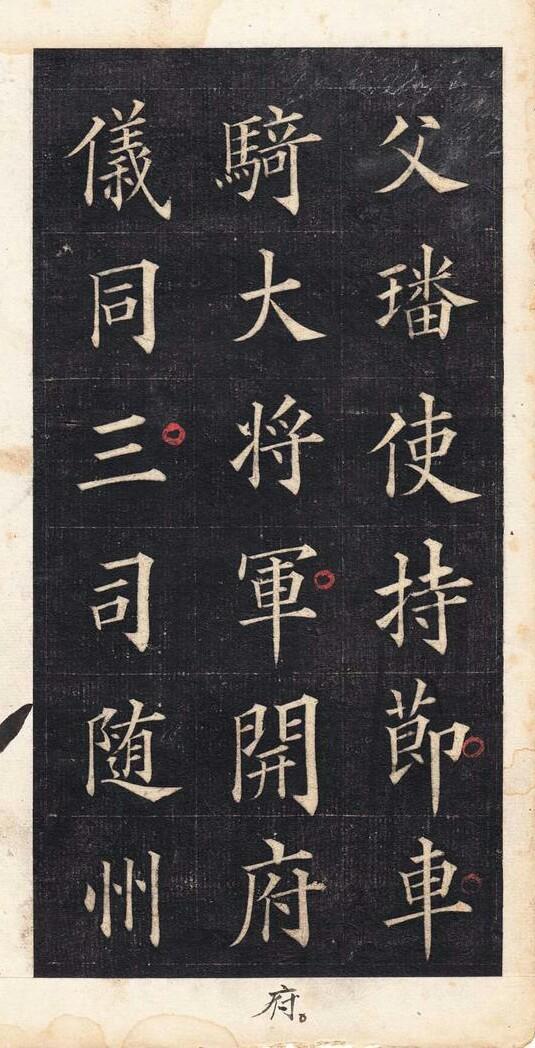 父璠使持節車
騎大将軍開府
儀同三司随州
府。